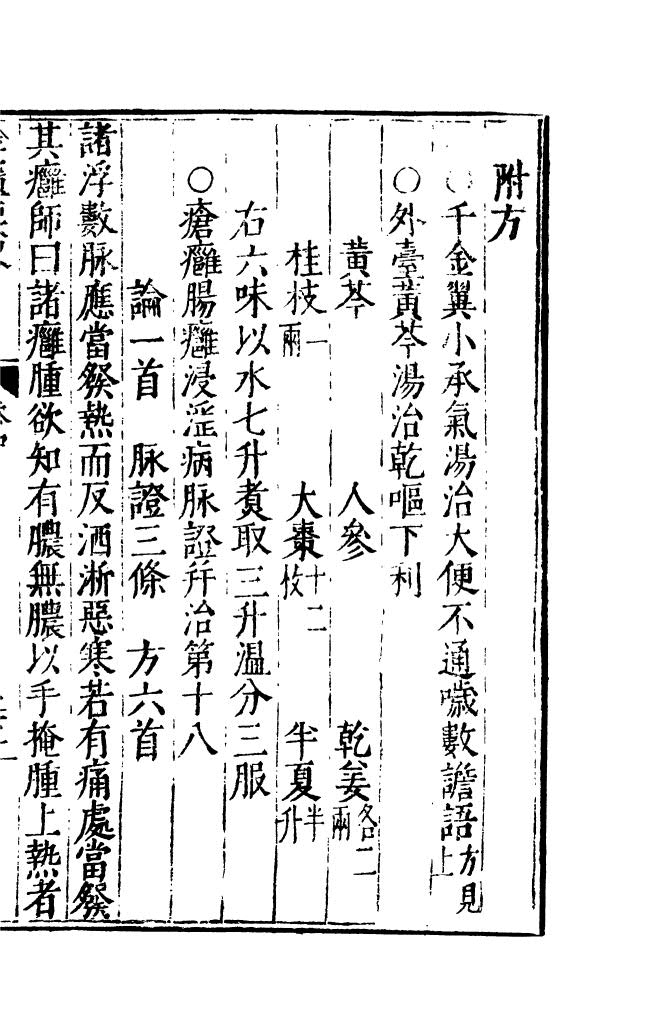 附方
○千金翼小承氣湯治大便不通噦數譫語方見上
○外臺黃芩湯治乾嘔下利
黃芩 人參 乾姜各二兩
桂枝一兩 大棗十二枚 半夏半升
右六味以水七升煮取三升溫分三服
○瘡癰腸癰浸淫病脉證幷治第十八
論一首 脉證三條 方六首
諸浮數脉應當發熱而反洒淅惡寒若有痛處當發
其癰師曰諸癰腫欲知有膿無膿以手掩腫上熱者